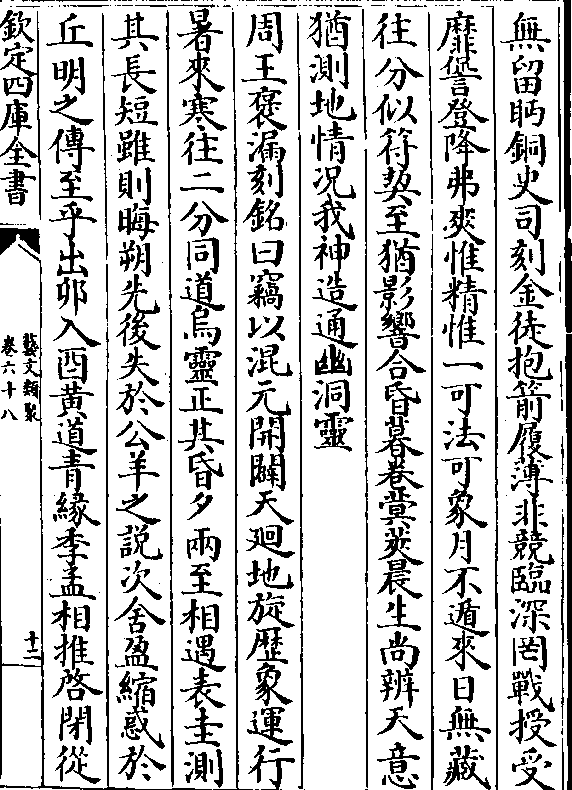 無留眄銅史司刻金徒抱箭履薄非競臨深罔戰授受
靡諐登降弗爽惟精惟一可法可象月不遁來日無藏
往分似符契至猶影響合昏暮卷蓂莢晨生尚辨天意
猶測地情况我神造通幽洞靈
周王褒漏刻銘曰竊以混元開闢天廻地旋歴象運行
暑來寒往二分同道烏靈正其昏夕兩至相遇表圭測
其長短雖則晦朔先後失於公羊之說次舍盈縮惑於
丘明之傳至乎出卯入酉黄道青緣季孟相推啓閉從
欽定四庫全書
藝文類聚
卷六十八
十二